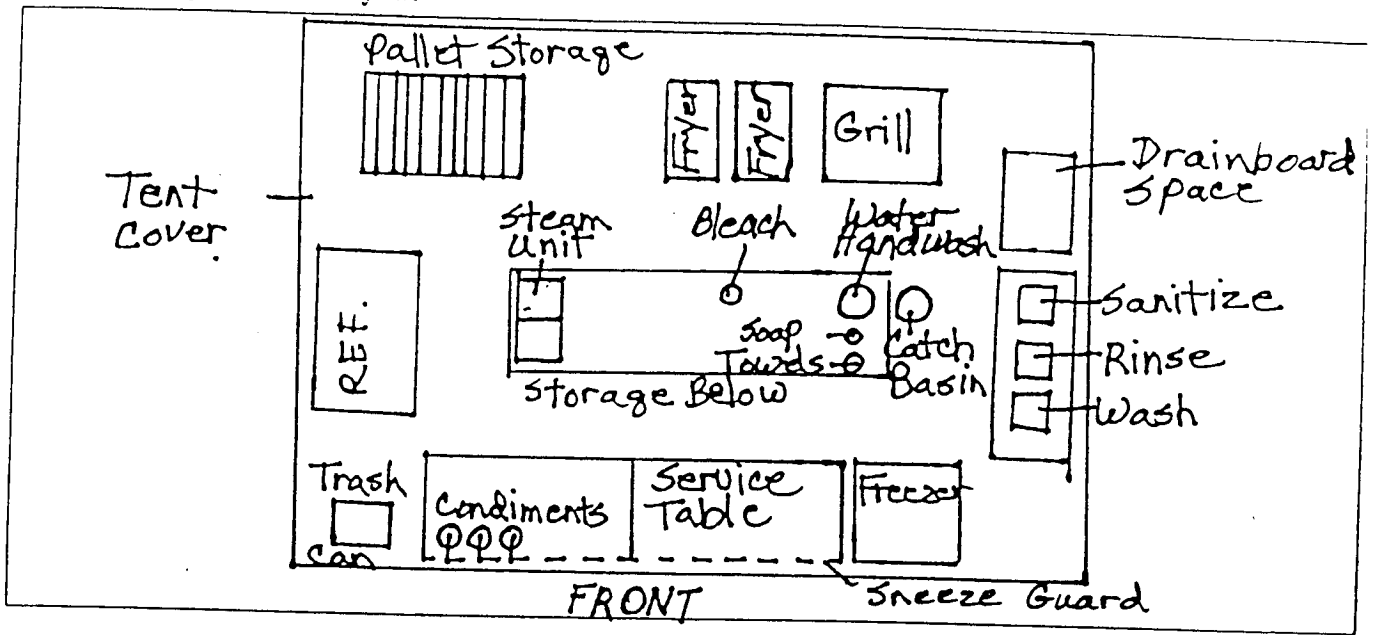 Pallet Storage
Fryer
Fryer
Grill
Drainboard
Space
Tent
Cover.
Steam
Unit
Bleach
Water
Handwash
Sanitize
REF.
Soap
Towels
Catch
Basin
Rinse
Storage Below
Wash
Trash
Can
Condiments
Service
Table
Freezer
FRONT
Sneeze Guard